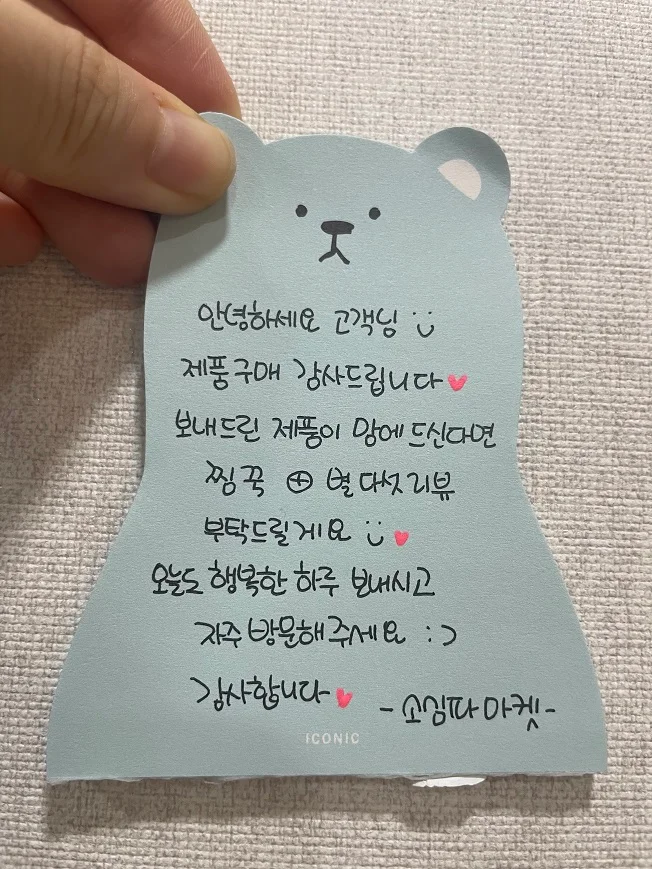 안녕하세요 고객님 :)
제품구매 감사드립니다♥
보내드린 제품이 맘에 드신다면
찜꾹 ⊕ 별 다섯 리뷰
부탁드릴게요 :) ♥
오늘도 행복한 하루 보내시고
자주 방문해주세요 :)
감사합니다♥
-소심따마켓-
ICONIC